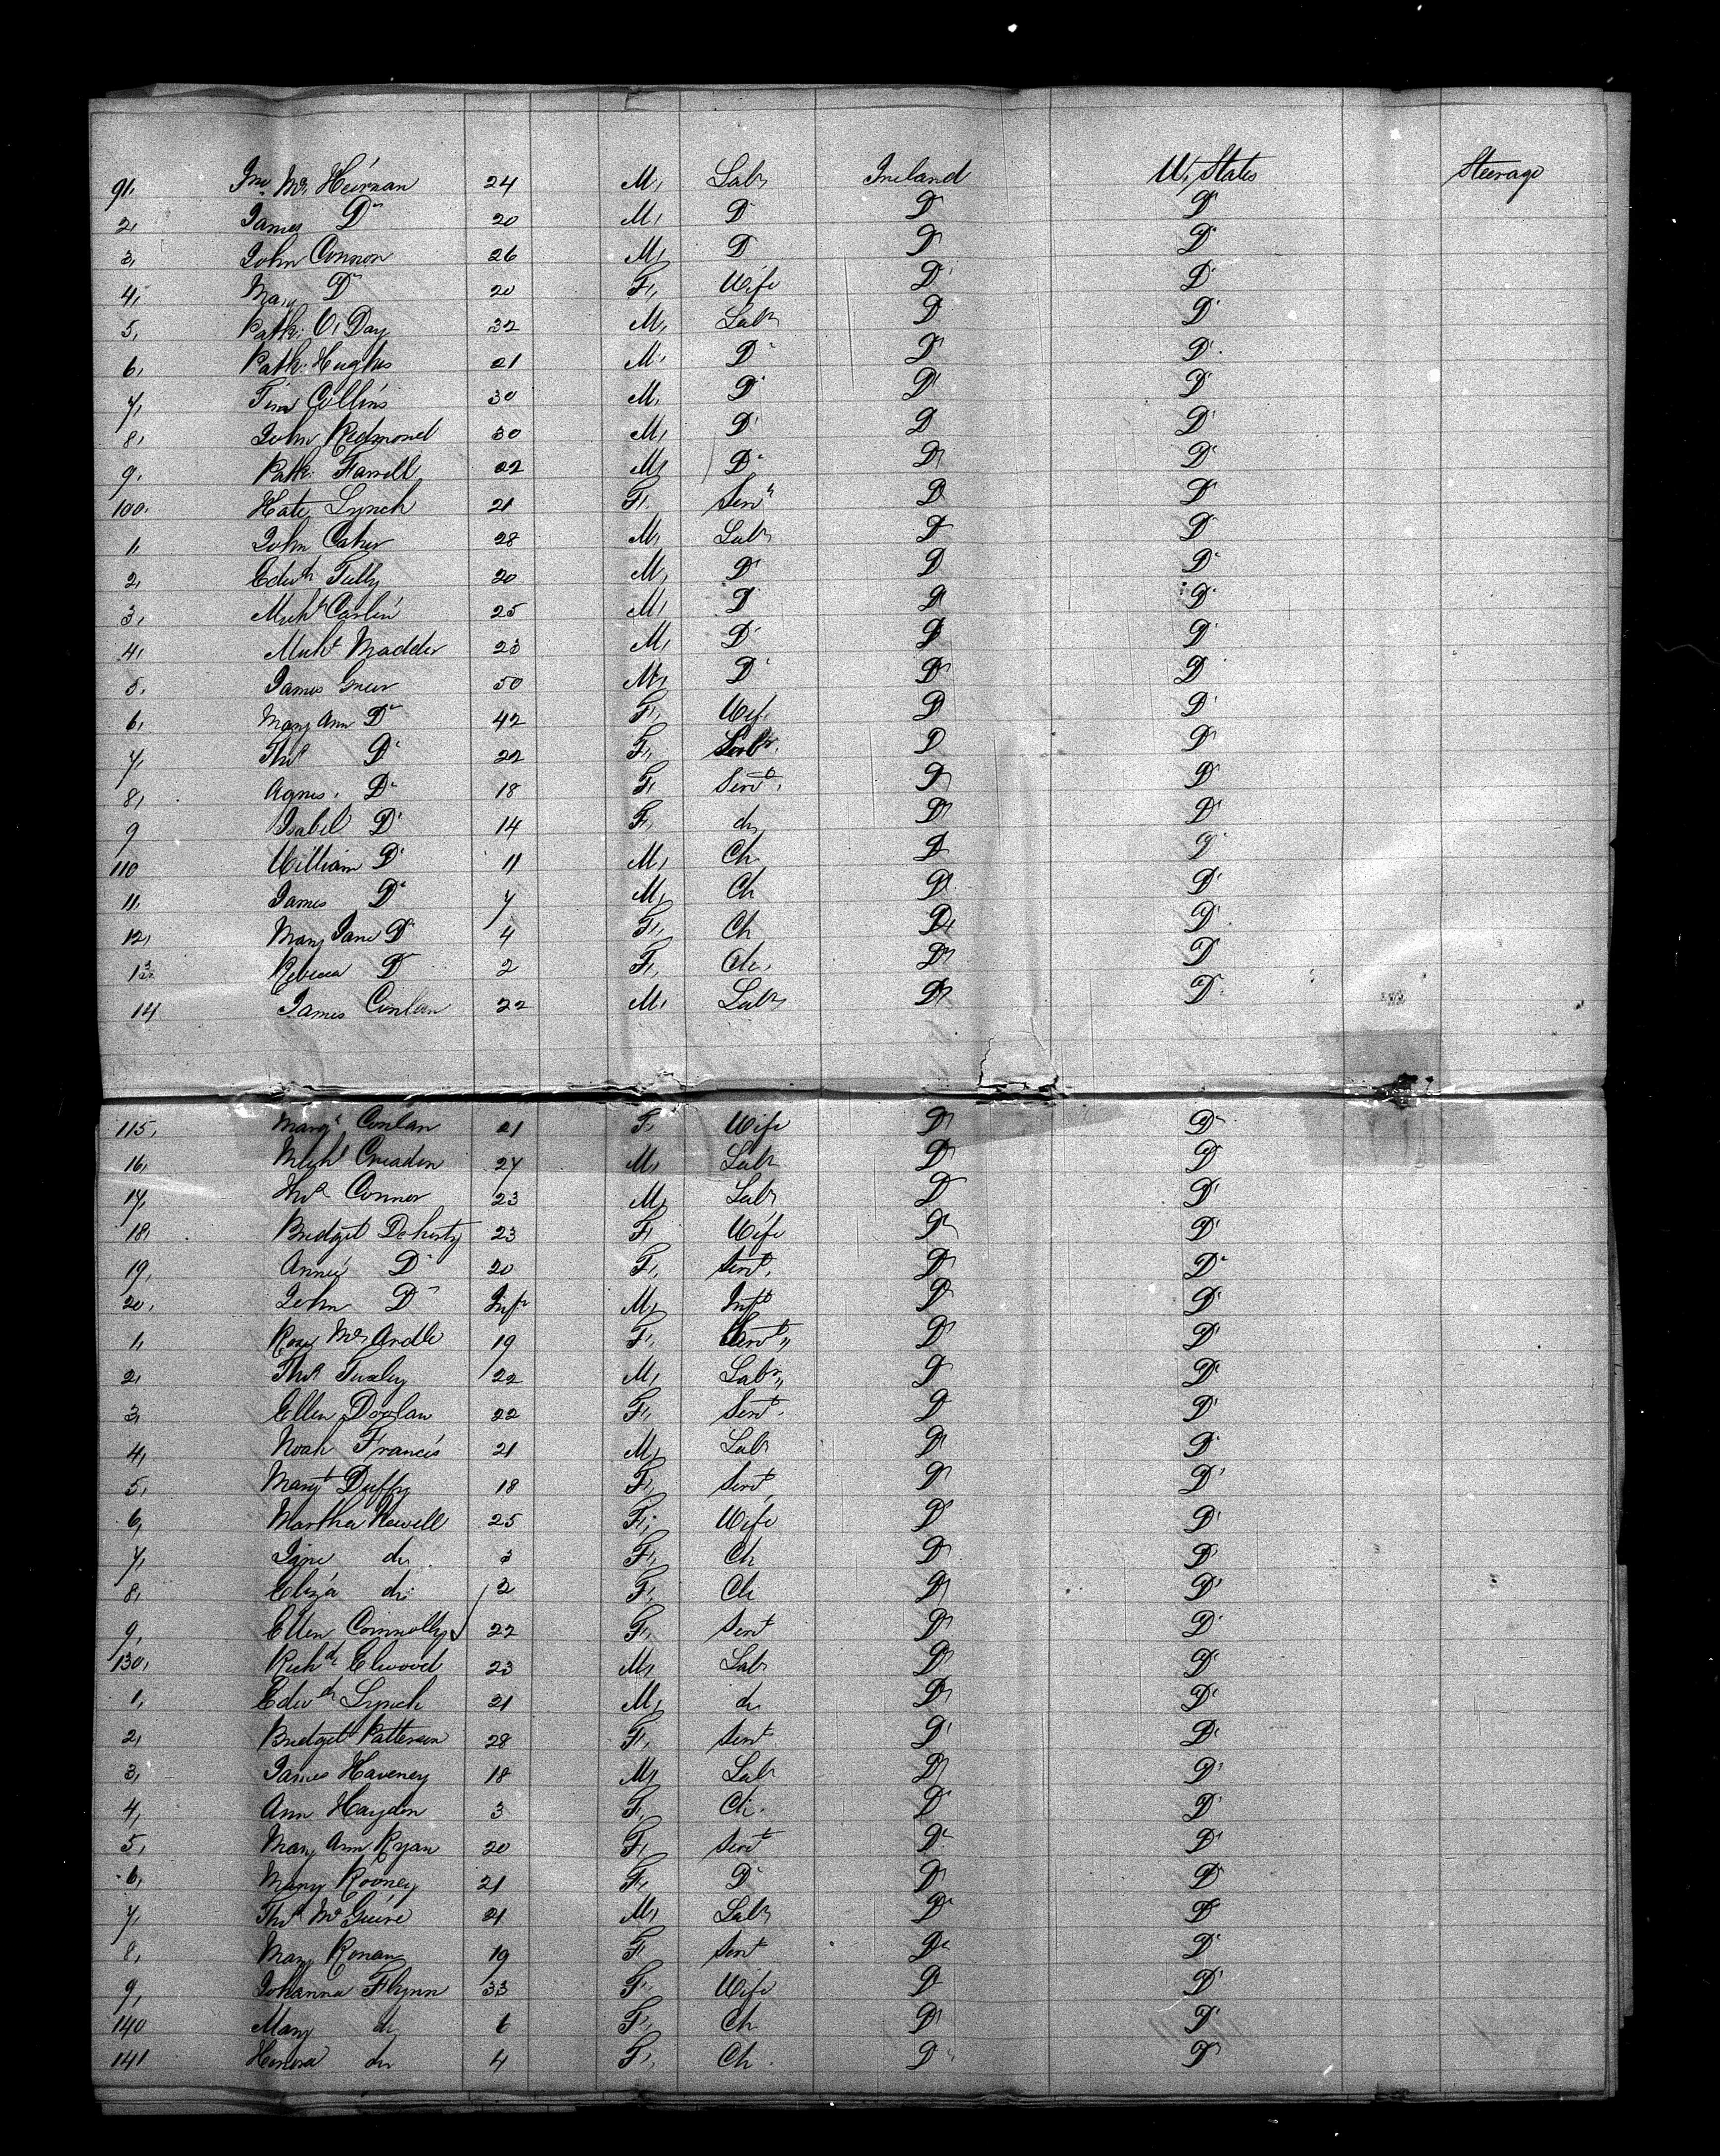 91, Jno. Mc Heirnan 24 M, Labr Ireland U, States Steerage
2, James Do 20 M, Do Do Do
3, John Connor 26 M, D Do Do
4, Mary Do 20 F, Wife Do Do
5, Patk: O, Day 32 M, Labr Do Do
6, Patk: Hughes 21 M, Do Do Do
7, Tim Collins 30 M, Do Do Do
8, John Redmond 30 M, Do Do Do
9, Patk: Farrell 22 M, Do Do Do
100, Kate Lynch 21 F, Servt Do Do
1, John Caher 28 M, Labr Do Do
2, Edwd Tully 20 M, Do Do Do
3, Michl Carlin 25 M, Do Do Do
4, Michl Madder 23 M, Do Do Do
5, James Greer 50 M, Do Do Do
6, Mary Ann Do 42 F, Wife Do Do
7, Thos Do 22 F, Labr. Do Do
8, Agnes Do 18 F, Servt, Do Do
9 Isabel Do 14 F, do Do Do
110 William Do 11 M, Ch Do Do
11, James Do 7 M, Ch Do Do
12, Mary Jane Do 4 F, Ch Do Do
13 Rebecca Do 2 F, Ch, Do Do
14 James Conlan 22 M, Labr Do Do
115, Margt Conlan 21 F, Wife Do Do
16, Michl Creaden 27 M, Labr Do Do
17, Thos Connor 23 M, Labr Do Do
18, Bridget Doherty 23 F, Wife Do Do
19, Annie Do 20 F, Servt, Do Do
20, John Do Inft M, Inft Do Do
1, Rose Mc Ardle 19 F, Servt,, Do Do
2, Thos 22 M, Labr,, Do Do
3, Ellen Doolan 22 F, Servt. Do Do
4, Noah Francis 21 M, Labr Do Do
5, Margt Duffy 18 F, Servt Do Do
6, Martha Newell 25 F, Wife Do Do
7, Jane do 3 F, Ch Do Do
8, Eliza do 2 F, Ch Do Do
9, Ellen Connolly 22 F, Servt Do Do
130, Richd Elwood 23 M, Labr Do Do
1, Edwd Lynch 21 M, do Do Do
2, Bridget Patterson 28 F, Servt Do Do
3, James Haveney 18 M, Labr Do Do
4, Ann Hayden 3 F, Ch. Do Do
5, Mary Ann Ryan 20 F, Servt Do Do
6, Mary Rooney 21 F, Do Do Do
7, Thos Mc Guire 21 M, Labr Do Do
8, Mary Ronan 19 F, Servt Do Do
9, Johanna Flynn 33 F, Wife Do Do
140 Mary do 6 F, Ch Do Do
141 Honora do 4 F, Ch. Do Do